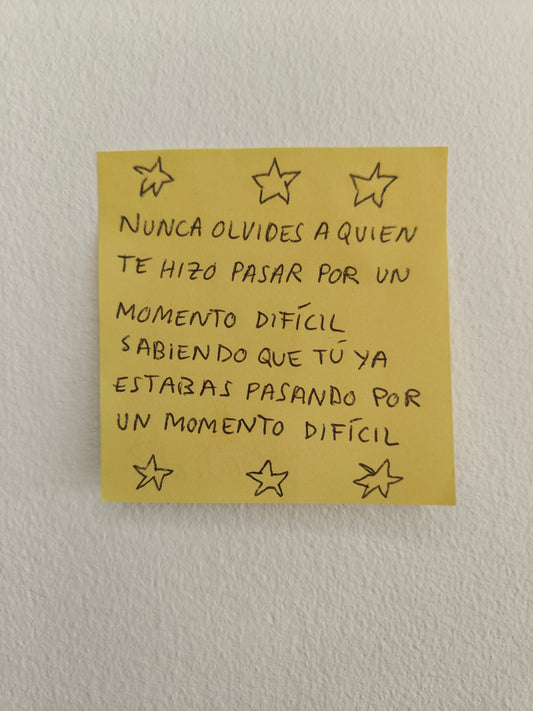 NUNCA OLVIDES A QUIEN
TE HIZO PASAR POR UN
MOMENTO DIFÍCIL
SABIENDO QUE TÚ YA
ESTABAS PASANDO POR
UN MOMENTO DIFÍCIL